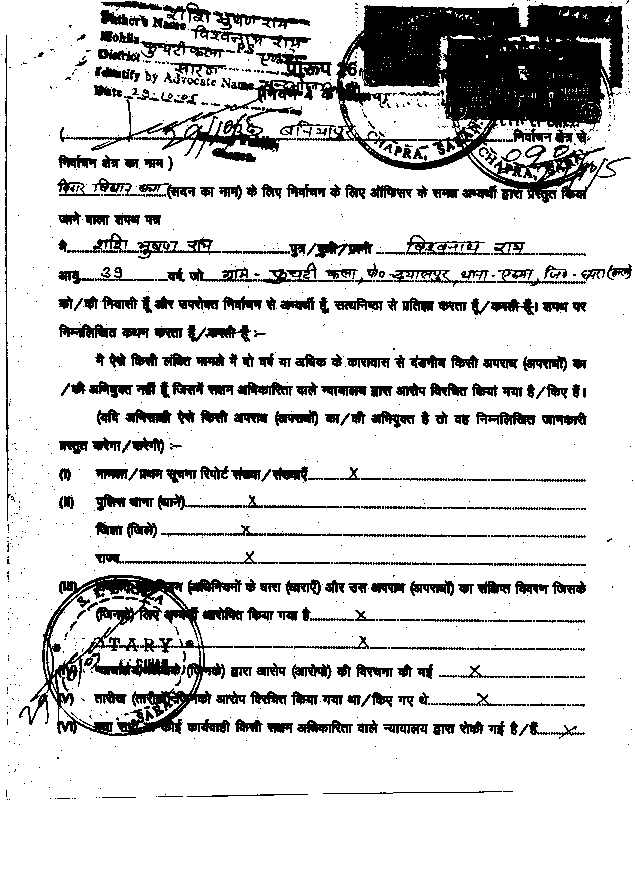 शशि भुषण राम
Father's Name विश्वनाथ राम
Mohlla कुचटी कला P.S एकमा
District सारण
Identify by Advocate Name
Date 29.10.05
प्रारूप 26
(नियम 4 क
29/10/05
CHAPRA, SARAN
CHAPRA, SARAN
( बनियापुर निर्वाचन क्षेत्र से
निर्वाचन क्षेत्र का नाम )
बिहार विधान सभा (सदन का नाम) के लिए निर्वाचन के लिए ऑफिसर के समक्ष अभ्यर्थी द्वारा प्रस्तुत किया
जाने वाला शपथ पत्र
मै शशि भुषण राम पुत्र/पुत्री/पत्नी विश्वनाथ राम
आयु 39 वर्ष, जो ग्राम- कुचटी कला, पो० दयालपुर, थाना- एकमा, जि०- छपरा
को/की निवासी हूँ और उपरोक्त निर्वाचन से अभ्यर्थी हूँ, सत्यनिष्ठा से प्रतिज्ञा करता हूँ/करती हूँ। शपथ पर
निम्नलिखित कथन करता हूँ/करती हूँ :-
मै ऐसे किसी लंबित मामले में दो वर्ष या अधिक के कारावास से दंडनीय किसी अपराध (अपराधों) का
/की अभियुक्त नहीं हूँ जिसमें सक्षम अधिकारिता वाले न्यायालय द्वारा आरोप विरचित किया गया है/किए हैं।
(यदि अभिसाक्षी ऐसे किसी अपराध (अपराधों) का/की अभियुक्त है तो वह निम्नलिखित जानकारी
प्रस्तुत करेगा/करेगी) :-
(I) मामला/प्रथम सूचना रिपोर्ट संख्या/संख्याएँ X
(II) पुलिस थाना (थानें) X
जिला (जिले) X
राज्य X
(III) (अधिनियमों के धारा (धाराएँ) और उस अपराध (अपराधों) का संक्षिप्त विवरण जिसके
(जिनके) लिए अभ्यर्थी आरोपित किया गया है X
X
NOTARY
(IV) (जिनके) द्वारा आरोप (आरोपों) की विरचना की गई X
(V) तारीख (तारीखें) जिनको आरोप विरचित किया गया था/किए गए थे X
(VI) क्या कोई कार्यवाही किसी सक्षम अधिकारिता वाले न्यायालय द्वारा रोकी गई है/हैं X